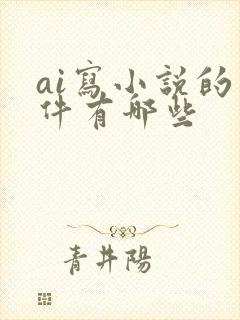 ai寫小說的
件有哪些
青井陽